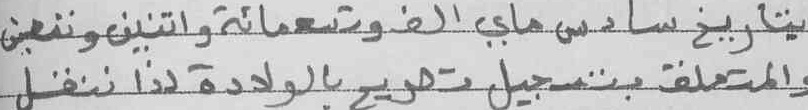 بتاريخ سادس ماي الف وتسعمائة واتنين وتسعين
والمتعلق بتسجيل تصريح بالولادة لذا ننفل